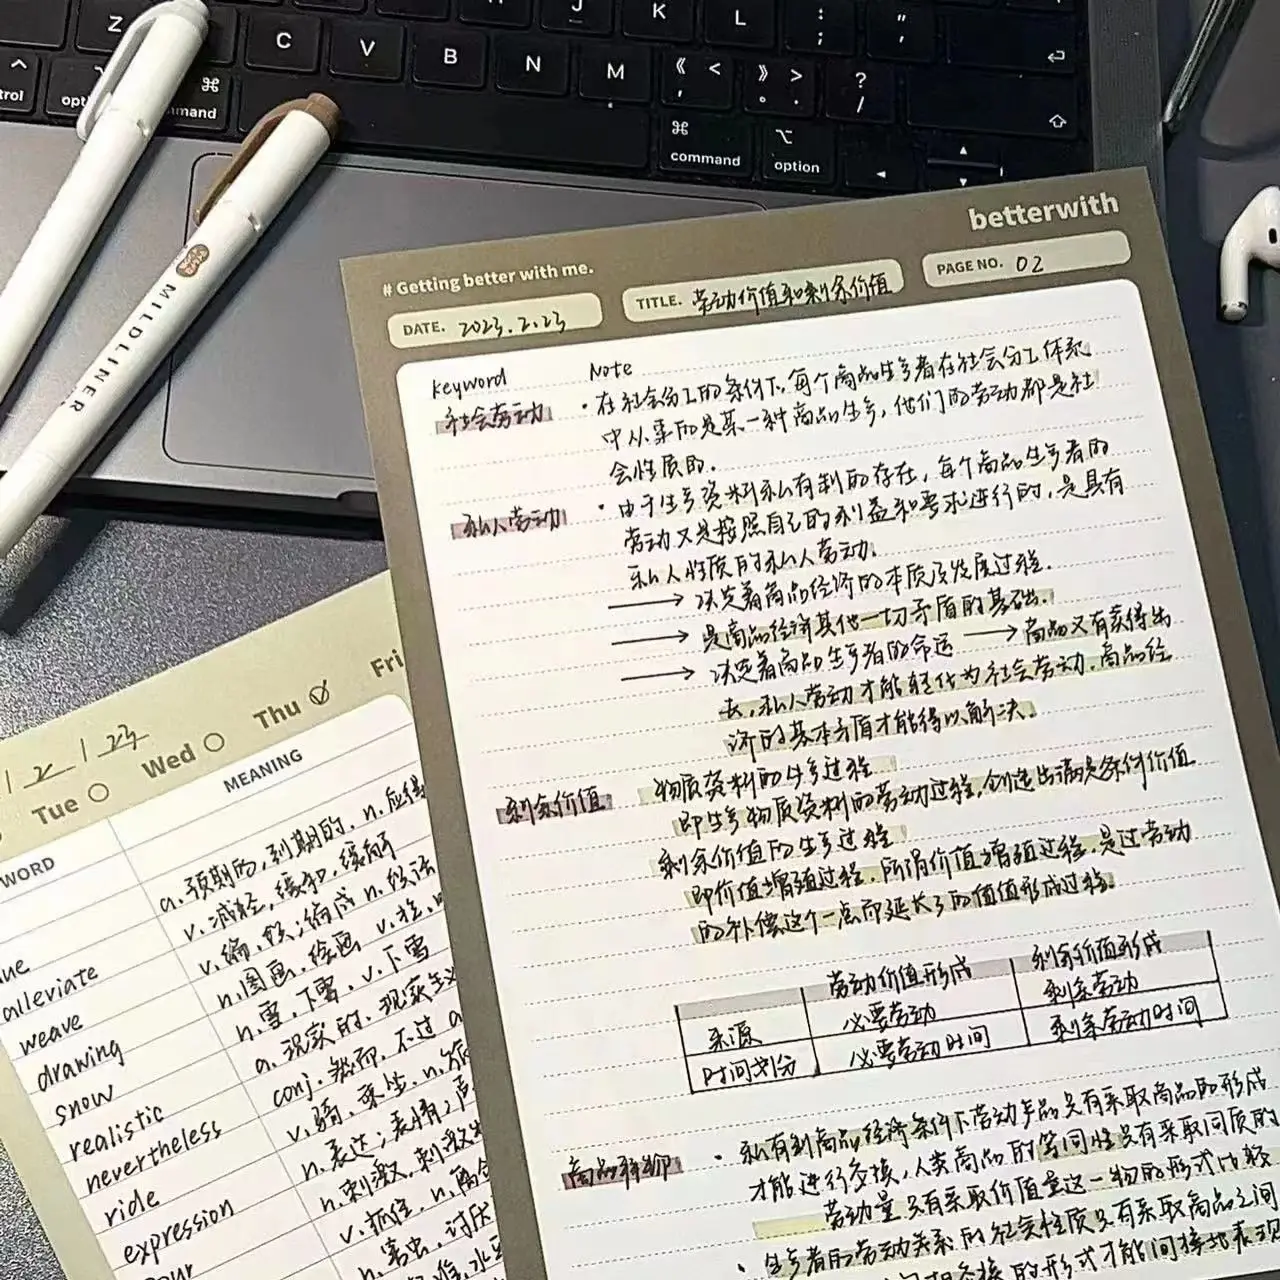 Z
C
V
B
N
M
J
K
L
: ;
" '
《 < ,
》 > 。 .
? /
command
option
command
option
MILDLINER
betterwith
# Getting better with me.
DATE. 2023.2.23
TITLE. 劳动价值和剩余价值
PAGE NO. 02
Keyword Note
社会劳动 · 在社会分工的条件下,每个商品生产者在社会分工体系
中从事的是某一种商品生产,他们的劳动都是社
会性质的.
私人劳动 · 由于生产资料私有制的存在,每个商品生产者的
劳动又是按照自己的利益和要求进行的,是具有
私人性质的私人劳动.
→ 决定着商品经济的本质及发展过程.
→ 是商品经济其他一切矛盾的基础.
→ 决定着商品生产者的命运 → 商品又有卖得出
去,私人劳动才能转化为社会劳动.商品经
济的基本矛盾才能得以解决.
剩余价值 物质资料的生产过程
即生产物质资料的劳动过程,创造出满足价值
剩余价值的生产过程
即价值增殖过程.所谓价值增殖过程.是过劳动
的补偿这个一点而延长了的价值形成过程.
劳动价值形成 剩余价值形成
来源 必要劳动 剩余劳动
时间划分 必要劳动时间 剩余劳动时间
商品 · 私有制商品经济条件下劳动产品只有采取商品的形式
才能进行交换,人类商品的等同性只有采取同质的
劳动量只有采取价值量这一物的形式比较
· 生产者的劳动关系的社会性质只有采取商品之间
交换的形式才能间接地表现
2 / 23
Tue Wed Thu Fri
WORD MEANING
a.预期的,到期的.n.应得
alleviate v.减轻,缓和,缓解
weave v.编,织;编成 n.织法
drawing n.图画,绘画
snow n.雪,下雪.v.下雪
realistic a.现实的.现实主义
nevertheless conj.然而.不过
ride v.骑.乘坐.n.
expression n.表达;表情;
n.刺激.刺激
v.抓住.n.
n.害虫,讨厌